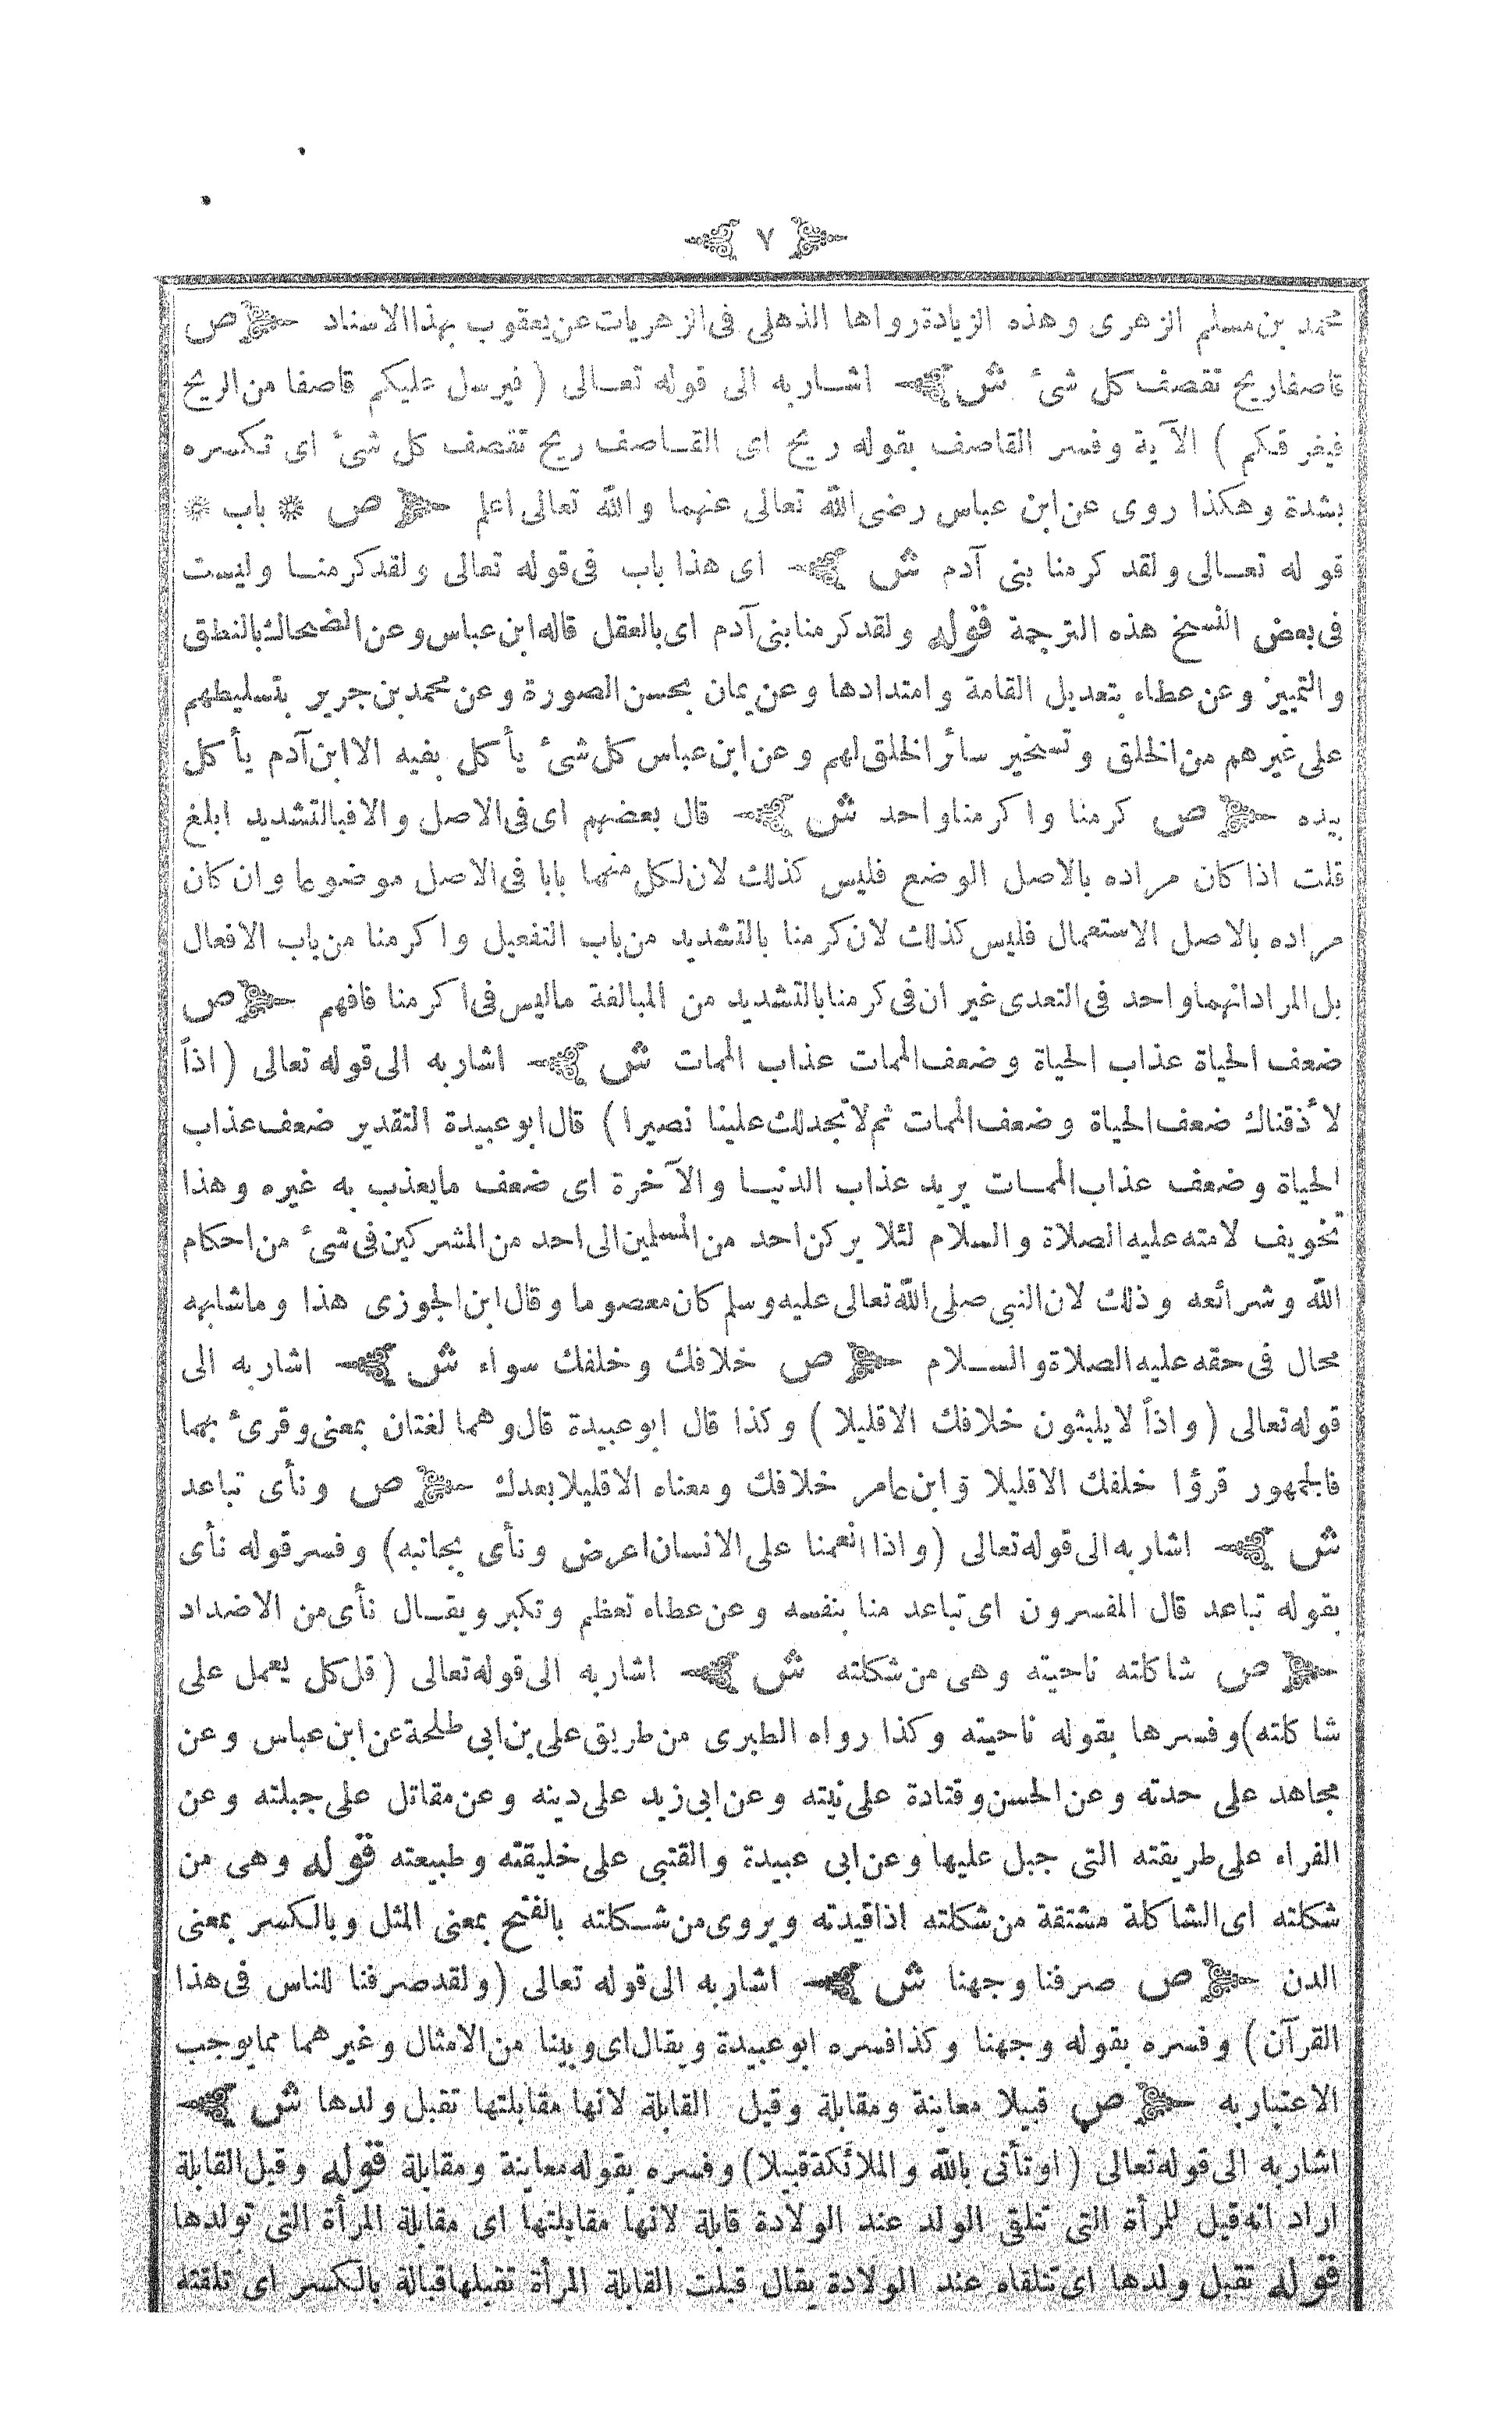 ٧
محمد بن مسلم الزهرى وهذه الزيادة رواها الذهلى فى الزهريات عن يعقوب بهذا الاسناد ص
قاصفا ريح تقصف كل شئ ش اشار به الى قوله تعالى ( فيرسل عليكم قاصفا من الريح
فيغرقكم ) الآية وفسر القاصف بقوله ريح اى القاصف ريح تقصف كل شئ اى تكسره
بشدة وهكذا روى عن ابن عباس رضى الله تعالى عنهما والله تعالى اعلم ص * باب *
قوله تعالى ولقد كرمنا بنى آدم ش اى هذا باب فى قوله تعالى ولقد كرمنا وليست
فى بعض النسخ هذه الترجمة قوله ولقد كرمنا بنى آدم اى بالعقل قاله ابن عباس وعن الضحاك بالنطق
والتمييز وعن عطاء بتعديل القامة وامتدادها وعن يمان بحسن الصورة وعن محمد بن جرير بتسليطهم
على غيرهم من الخلق وتسخير سائر الخلق لهم وعن ابن عباس كل شئ يأكل بفيه الا ابن آدم يأكل
بيده ص كرمنا واكرمنا واحد ش قال بعضهم اى فى الاصل والا فبالتشديد ابلغ
قلت اذا كان مراده بالاصل الوضع فليس كذلك لان لكل منهما بابا فى الاصل موضوعا وان كان
مراده بالاصل الاستعمال فليس كذلك لان كرمنا بالتشديد من باب التفعيل واكرمنا من باب الافعال
بل المراد انهما واحد فى التعدى غير ان فى كرمنا بالتشديد من المبالغة ما ليس فى اكرمنا فافهم ص
ضعف الحياة عذاب الحياة وضعف الممات عذاب الممات ش اشار به الى قوله تعالى ( اذاً
لأذقناك ضعف الحياة وضعف الممات ثم لا تجد لك علينا نصيرا ) قال ابو عبيدة التقدير ضعف عذاب
الحياة وضعف عذاب الممات يريد عذاب الدنيا والآخرة اى ضعف ما يعذب به غيره وهذا
تخويف لامته عليه الصلاة والسلام لئلا يركن احد من المسلمين الى احد من المشركين فى شئ من احكام
الله وشرائعه وذلك لان النبى صلى الله تعالى عليه وسلم كان معصوما وقال ابن الجوزى هذا وما شابهه
محال فى حقه عليه الصلاة والسلام ص خلافك وخلفك سواء ش اشار به الى
قوله تعالى ( واذاً لا يلبثون خلافك الا قليلا ) وكذا قال ابو عبيدة قال وهما لغتان بمعنى وقرئ بهما
فالجمهور قرؤا خلفك الا قليلا وابن عامر خلافك ومعناه الا قليلا بعدك ص ونأى تباعد
ش اشار به الى قوله تعالى ( واذا انعمنا على الانسان اعرض ونأى بجانبه ) وفسر قوله نأى
بقوله تباعد قال المفسرون اى تباعد منا بنفسه وعن عطاء تعظم وتكبر ويقال نأى من الاضداد
ص شاكلته ناحيته وهى من شكلته ش اشار به الى قوله تعالى ( قل كل يعمل على
شاكلته ) وفسرها بقوله ناحيته وكذا رواه الطبرى من طريق على بن ابى طلحة عن ابن عباس وعن
مجاهد على حدته وعن الحسن وقتادة على نيته وعن ابى زيد على دينه وعن مقاتل على جبلته وعن
الفراء على طريقته التى جبل عليها وعن ابى عبيدة والقتبى على خليقته وطبيعته قوله وهى من
شكلته اى الشاكلة مشتقة من شكلته اذا قيدته ويروى من شكلته بالفتح بمعنى المثل وبالكسر بمعنى
الدن ص صرفنا وجهنا ش اشار به الى قوله تعالى ( ولقد صرفنا للناس فى هذا
القرآن ) وفسره بقوله وجهنا وكذا فسره ابو عبيدة ويقال اى وبينا من الامثال وغيرهما مما يوجب
الاعتبار به ص قبيلا معاينة ومقابلة وقيل القابلة لانها مقابلتها تقبل ولدها ش
اشار به الى قوله تعالى ( او تأتى بالله والملائكة قبيلا ) وفسره بقوله معاينة ومقابلة قوله وقيل القابلة
اراد انه قيل للمرأة التى تتلقى الولد عند الولادة قابلة لانها مقابلتها اى مقابلة المرأة التى تولدها
قوله تقبل ولدها اى تتلقاه عند الولادة يقال قبلت القابلة المرأة تقبلها قبالة بالكسر اى تلقته